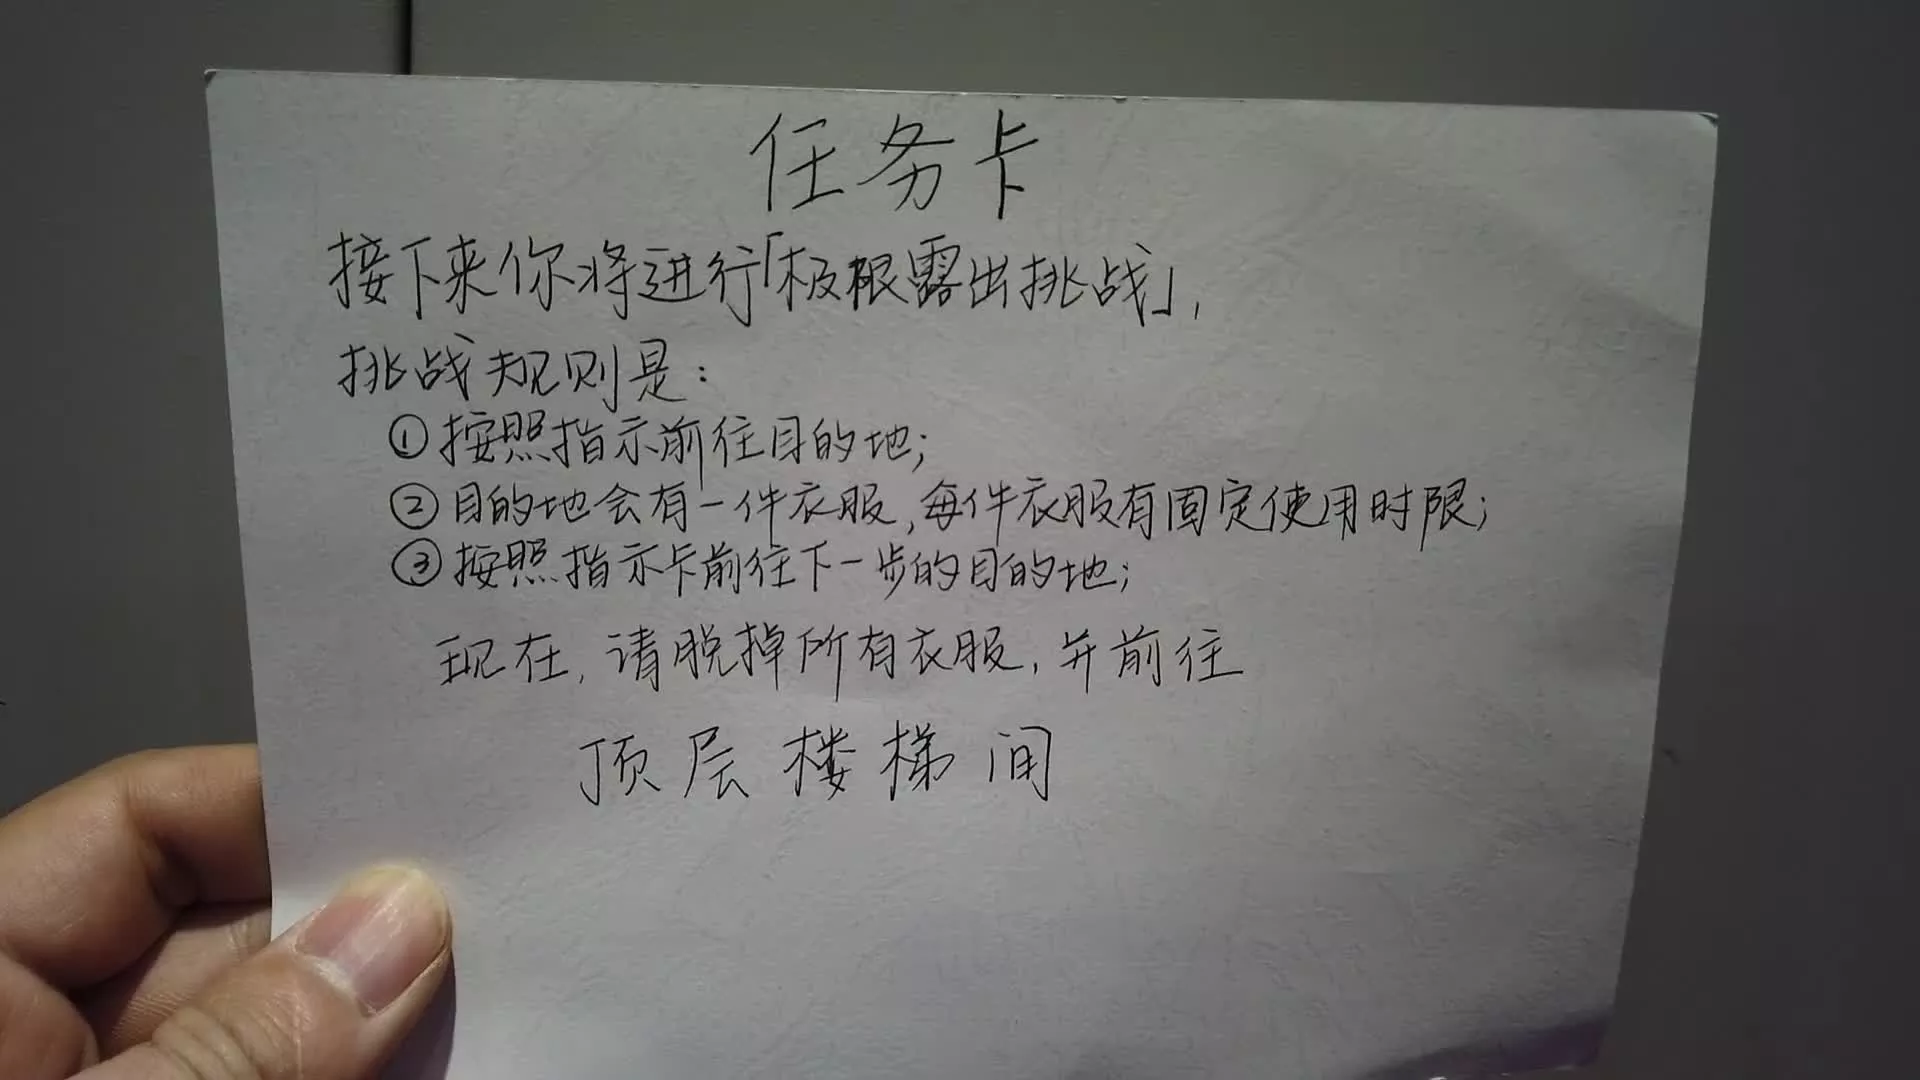 任务卡
接下来你将进行「极限露出挑战」，
挑战规则是：
①按照指示前往目的地；
②目的地会有一件衣服，每件衣服有固定使用时限；
③按照指示卡前往下一步的目的地；
现在，请脱掉所有衣服，并前往
顶层楼梯间